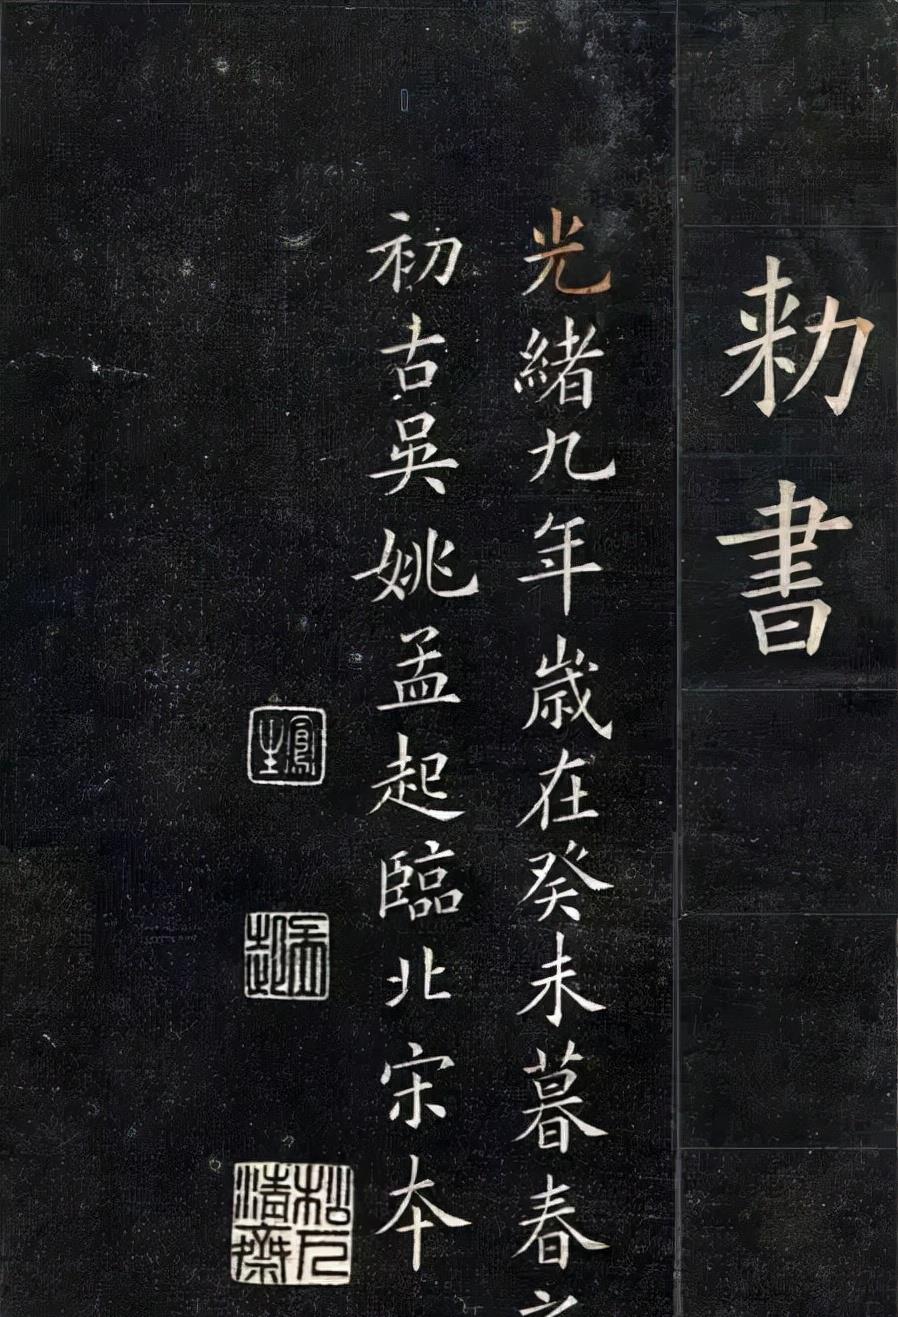 勑書
光緒九年歲在癸未暮春
初古吳姚孟起臨北宋本
鳳生
孟起
松下清齋